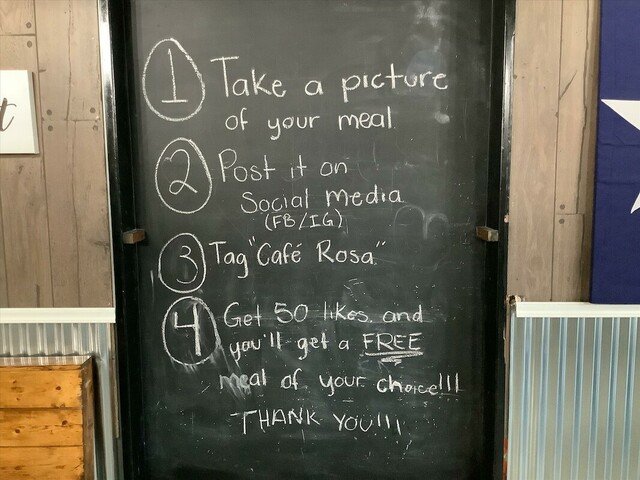 1 Take a picture
of your meal
2 Post it on
Social media
(FB/IG)
3 Tag "Café Rosa"
4 Get 50 likes and
you'll get a FREE
meal of your choice!!!
THANK YOU!!!
t